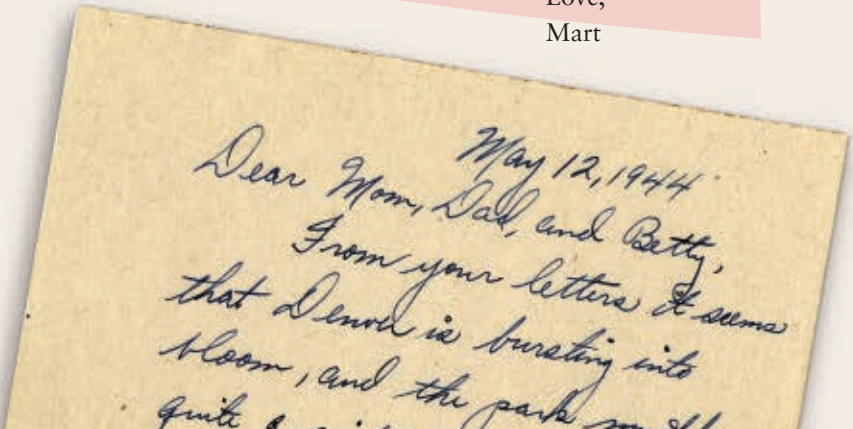 Love,
Mart
May 12, 1944
Dear Mom, Dad, and Betty,
From your letters it seems
that Denver is bursting into
bloom, and the park
quite a